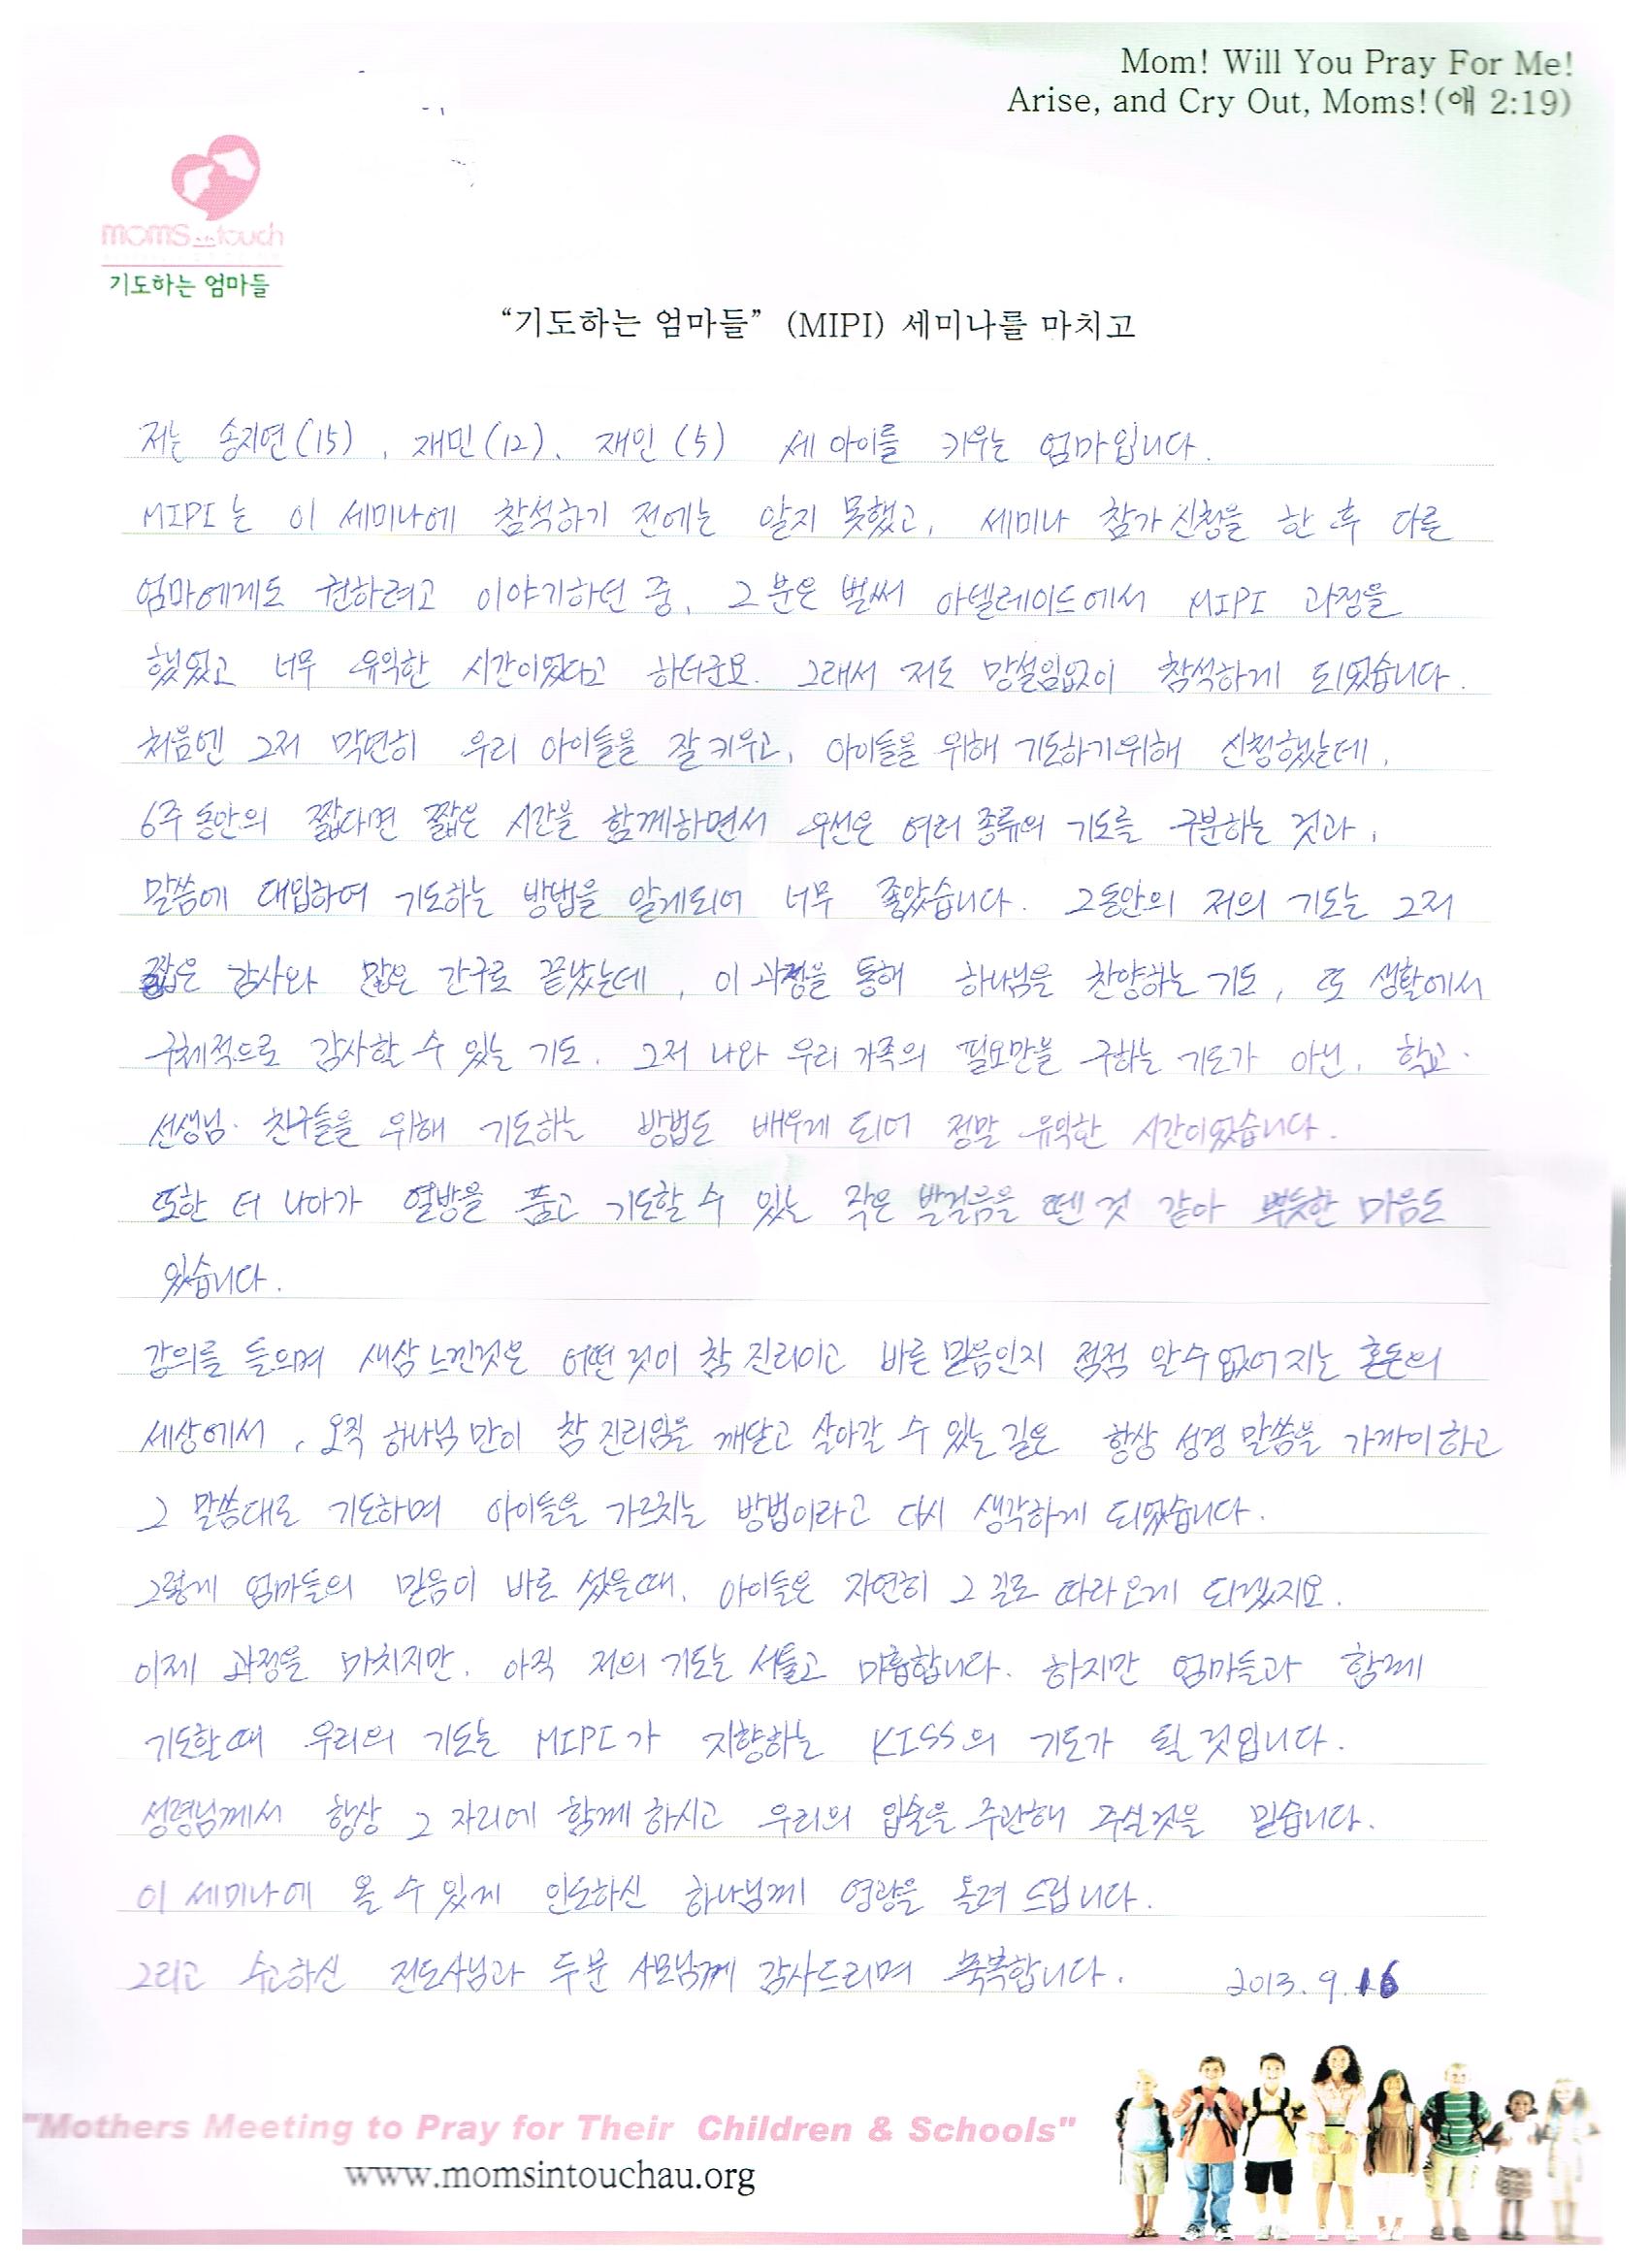 Mom! Will You Pray For Me!
Arise, and Cry Out, Moms!(애 2:19)
moms in touch
기도하는 엄마들
“기도하는 엄마들” (MIPI) 세미나를 마치고
저는 송지연(15), 재민(12), 재인(5) 세 아이를 키우는 엄마입니다.
MIPI는 이 세미나에 참석하기 전에는 알지 못했고, 세미나 참가 신청을 한 후 다른
엄마에게도 권하려고 이야기하던 중, 그 분은 벌써 아델레이드에서 MIPI 과정을
했었고 너무 유익한 시간이었다고 하더군요. 그래서 저도 망설임없이 참석하게 되었습니다.
처음엔 그저 막연히 우리 아이들을 잘 키우고, 아이들을 위해 기도하기위해 신청했는데,
6주 동안의 짧다면 짧은 시간을 함께하면서 우선은 여러 종류의 기도를 구분하는 것과,
말씀에 대입하여 기도하는 방법을 알게되어 너무 좋았습니다. 그동안의 저의 기도는 그저
짧은 감사와 많은 간구로 끝났는데, 이 과정을 통해 하나님을 찬양하는 기도, 또 생활에서
구체적으로 감사할 수 있는 기도, 그저 나와 우리 가족의 필요만을 구하는 기도가 아닌, 학교·
선생님· 친구들을 위해 기도하는 방법도 배우게 되어 정말 유익한 시간이었습니다.
또한 더 나아가 열방을 품고 기도할 수 있는 작은 발걸음을 뗀 것 같아 뿌듯한 마음도
있습니다.
강의를 들으며 새삼 느낀것은 어떤 것이 참 진리이고 바른 믿음인지 점점 알수 없어 지는 혼돈의
세상에서, 오직 하나님 만이 참 진리임을 깨닫고 살아갈 수 있는 길은 항상 성경 말씀을 가까이 하고
그 말씀대로 기도하며 아이들을 가르치는 방법이라고 다시 생각하게 되었습니다.
그렇게 엄마들의 믿음이 바로 섰을때, 아이들은 자연히 그 길로 따라 오게 되겠지요.
이제 과정을 마치지만, 아직 저의 기도는 서툴고 미흡합니다. 하지만 엄마들과 함께
기도할때 우리의 기도는 MIPI가 지향하는 KISS의 기도가 될 것입니다.
성령님께서 항상 그 자리에 함께 하시고 우리의 입술을 주관해 주실것을 믿습니다.
이 세미나에 올 수 있게 인도하신 하나님께 영광을 올려 드립니다.
그리고 수고하신 전도사님과 두분 사모님께 감사드리며 축복합니다. 2013.9.16
"Mothers Meeting to Pray for Their Children & Schools"
www.momsintouchau.org